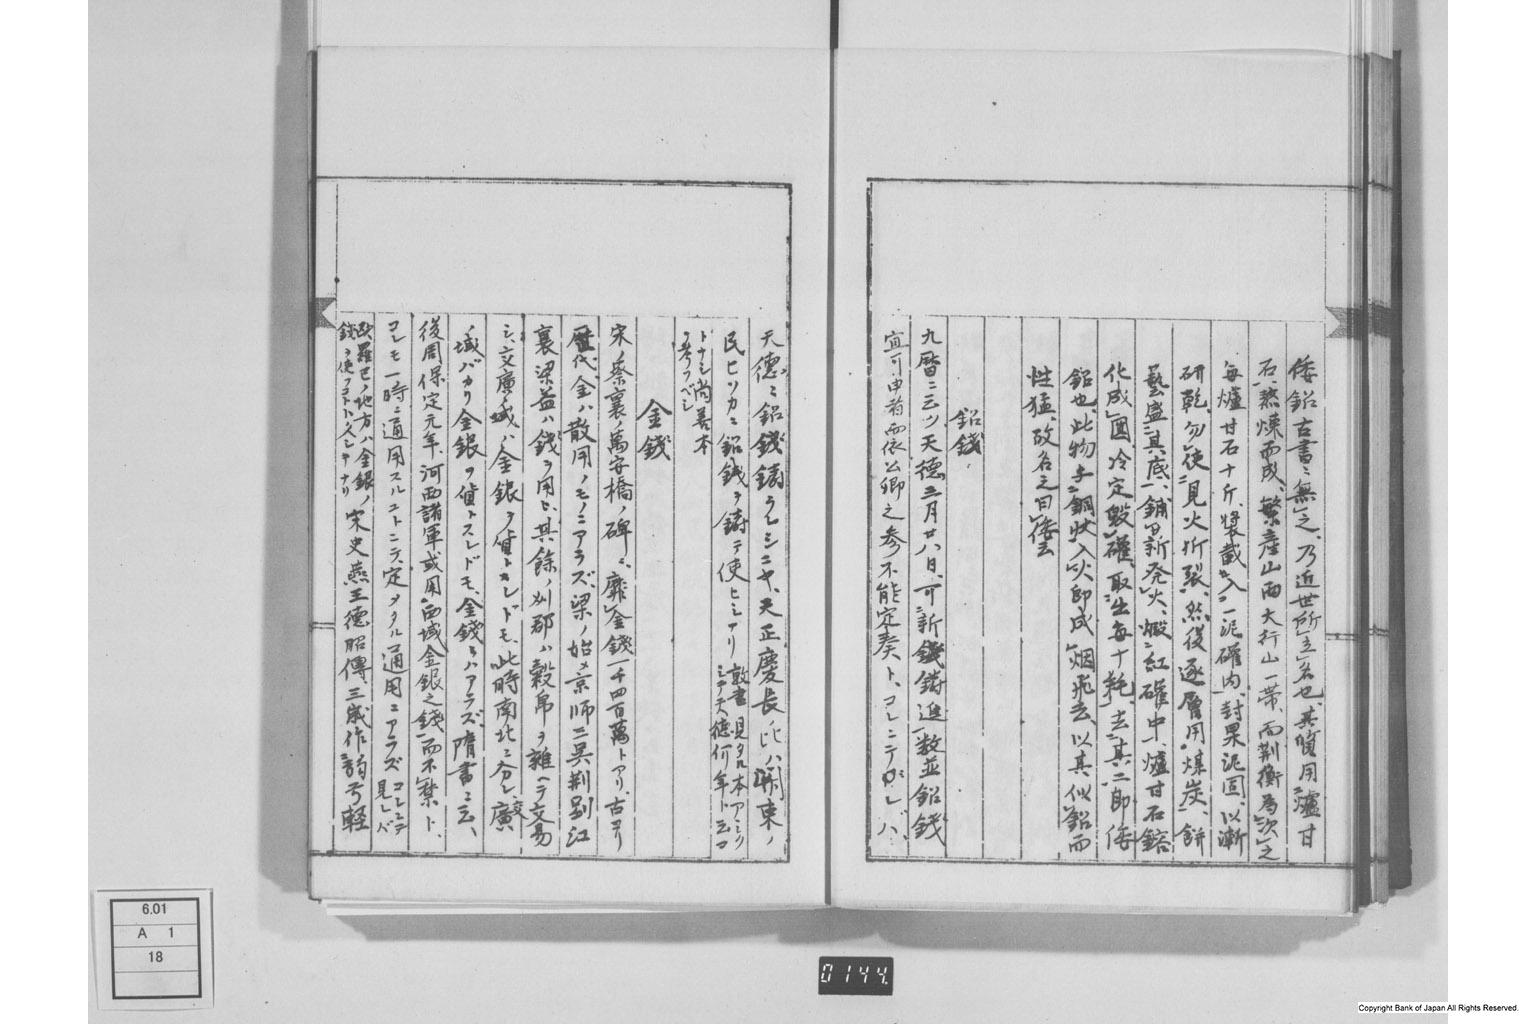 倭鉛古書ニ無之、乃近世所立名也、其質用爐甘
石熬煉而成、繁産山西大行山一帯、而荊衡為次之
毎爐甘石十斤、装載入一泥罐内、封果泥固、以漸
研乾、勿使見火拆裂、然後逐層用煤炭、餅
藝盛其底、鋪薪発火、煅紅罐中、爐甘石鎔
化成團冷定毀罐取出毎十耗去其二即倭
鉛也、此物与銅状入火即成烟飛去、以其似鉛而
性猛、故名之曰倭云
鉛錢
九暦ニ云ツ天德三月廿八日、可新錢鋳進數並鉛錢
宜可申者而依公卿之参不能定奏ト、コレニテ レバ、
天德ニ鉛錢鋳ラレシニヤ、天正慶長ノ比ハ関東ノ
民ヒソカニ鉛錢ヲ鋳テ使ヒシアリ 敦書見タル本アシクシテ天德何年ト云コ
トナシ尚善本ヲ考フベシ
金錢
宋ノ蔡襄ノ萬安橋ノ碑ニ、靡金錢一千四百萬トアリ、古ヨリ
歴代金ハ散用ノモノニアラズ、梁ノ始メ京師三呉荊郢江
襄梁益ハ錢ヲ用ヒ、其餘ノ州郡ハ穀帛ヲ雜ヘテ交易
シ、交廣ノ域ハ金銀ヲ貨トスレドモ、此時南北ニ分レ、交廣
ノ域バカリ金銀ヲ貨トスレドモ、金錢トハアラズ、隋書ニ云、
後周保定元年、河西諸軍或用西域金銀之錢而不禁ト、
コレモ一時ニ通用スルコトニテ定メタル通用ニアラズ コレニテ見レバ
歐羅巴ノ地方ハ金銀ノ錢ヲ使フコトハ久シキナリ 宋史燕王德昭傳、三歳作詩弓輕
6.01
A 1
18
0144.
Copyright Bank of Japan All Rights Reserved.